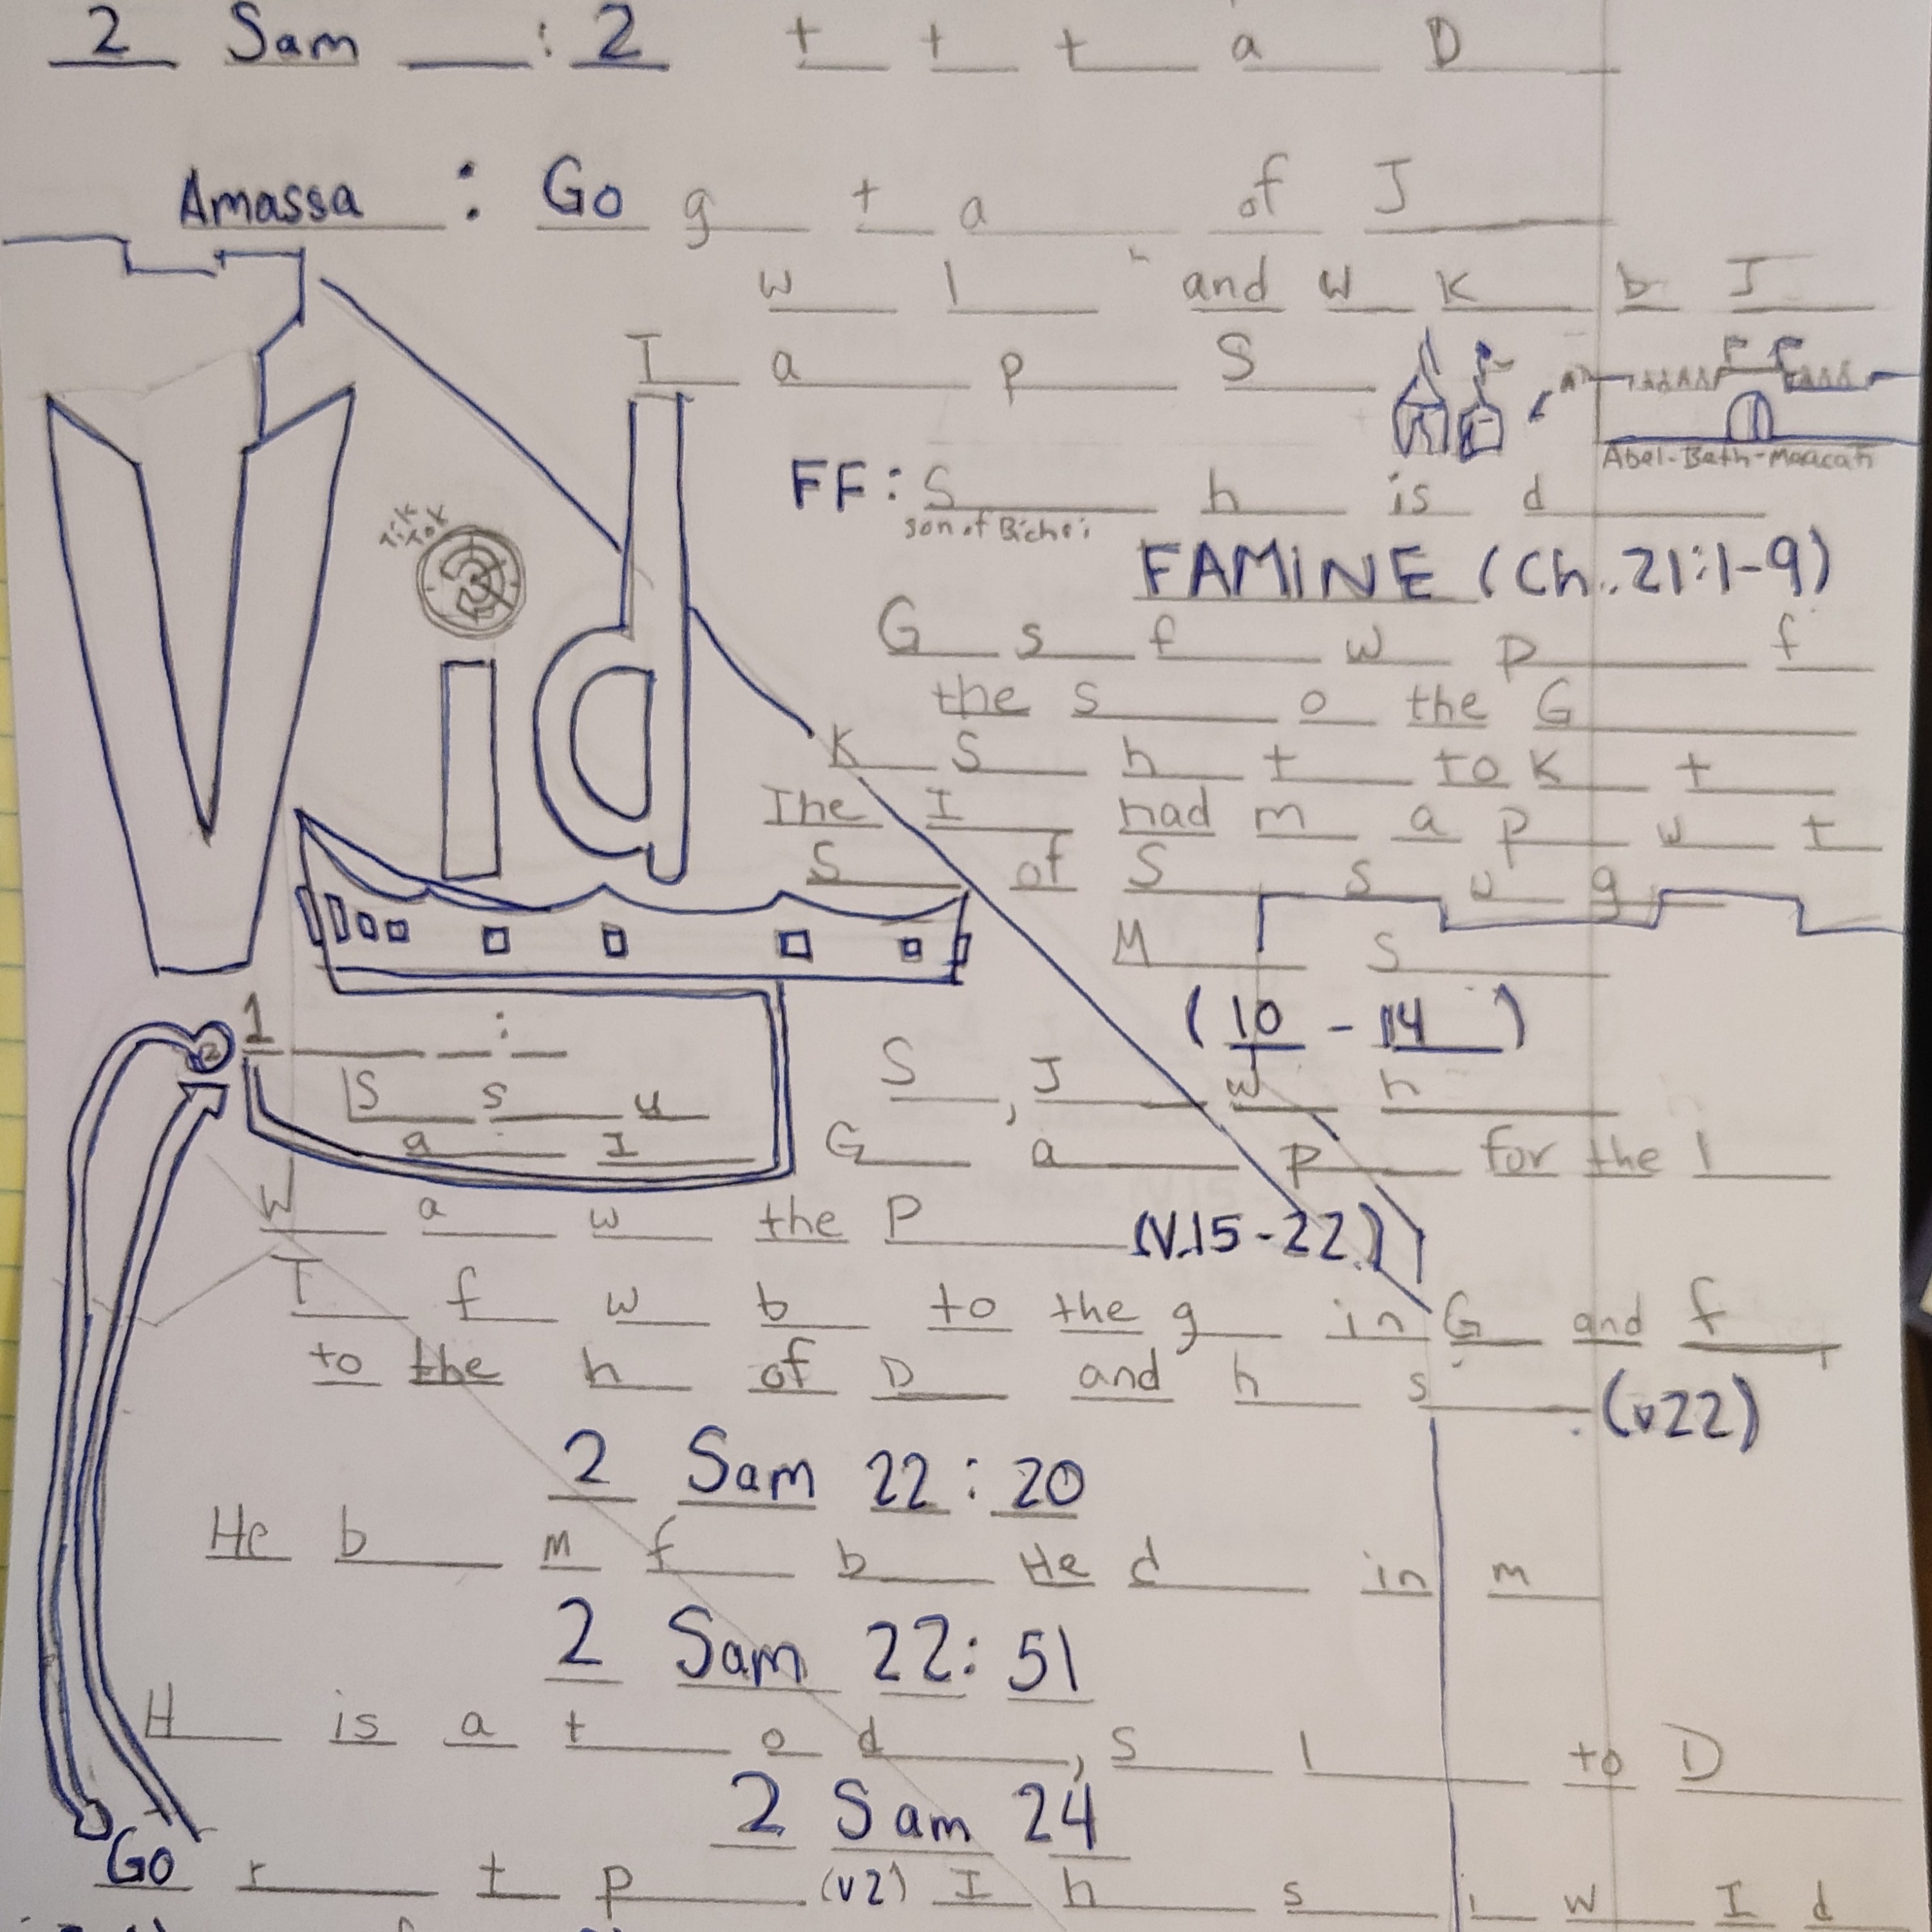 2 Sam __ : 2 t t t a D
Amassa : Go g t a of J
w l and w k b J
I a p S
Abel-Beth-Maacah
FF : S h is d
son of Bichri
Tik Tok
FAMINE (Ch. 21:1-9)
G s f w p f
the s o the G
K S h t to K t
The I had m a p w t
S of S s u g
M S
(10 - 14)
Vid
1 __ __ : __
S s u
a I
S , J w h
G a p for the l
W a w the P (V.15-22)
T f w b to the g in G and f
to the h of D and h s . (v22)
2 Sam 22 : 20
He b m f b He d in m
2 Sam 22 : 51
H is a t o d , s l to D
2 Sam 24
Go r t p (v2) I h s i w I d